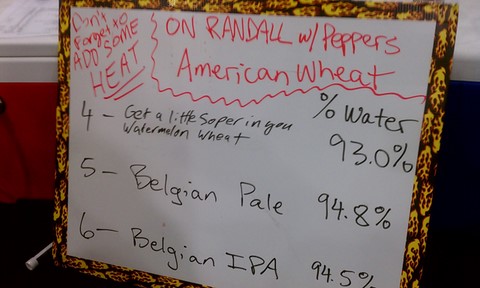 Don't
forget to
ADD SOME
HEAT
ON RANDALL w/ Peppers
American Wheat
% Water
4 - Get a little Soper in you
Watermelon Wheat
93.0%
5 - Belgian Pale 94.8%
6 - Belgian IPA 94.5%